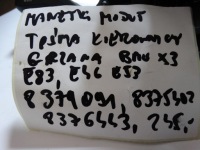 MANETKA MODUŁ
TAŚMA KIEROWNICY
GRZANA BMW X3
E83, E46 E53
8379091, 8375402
8376443, 245,-